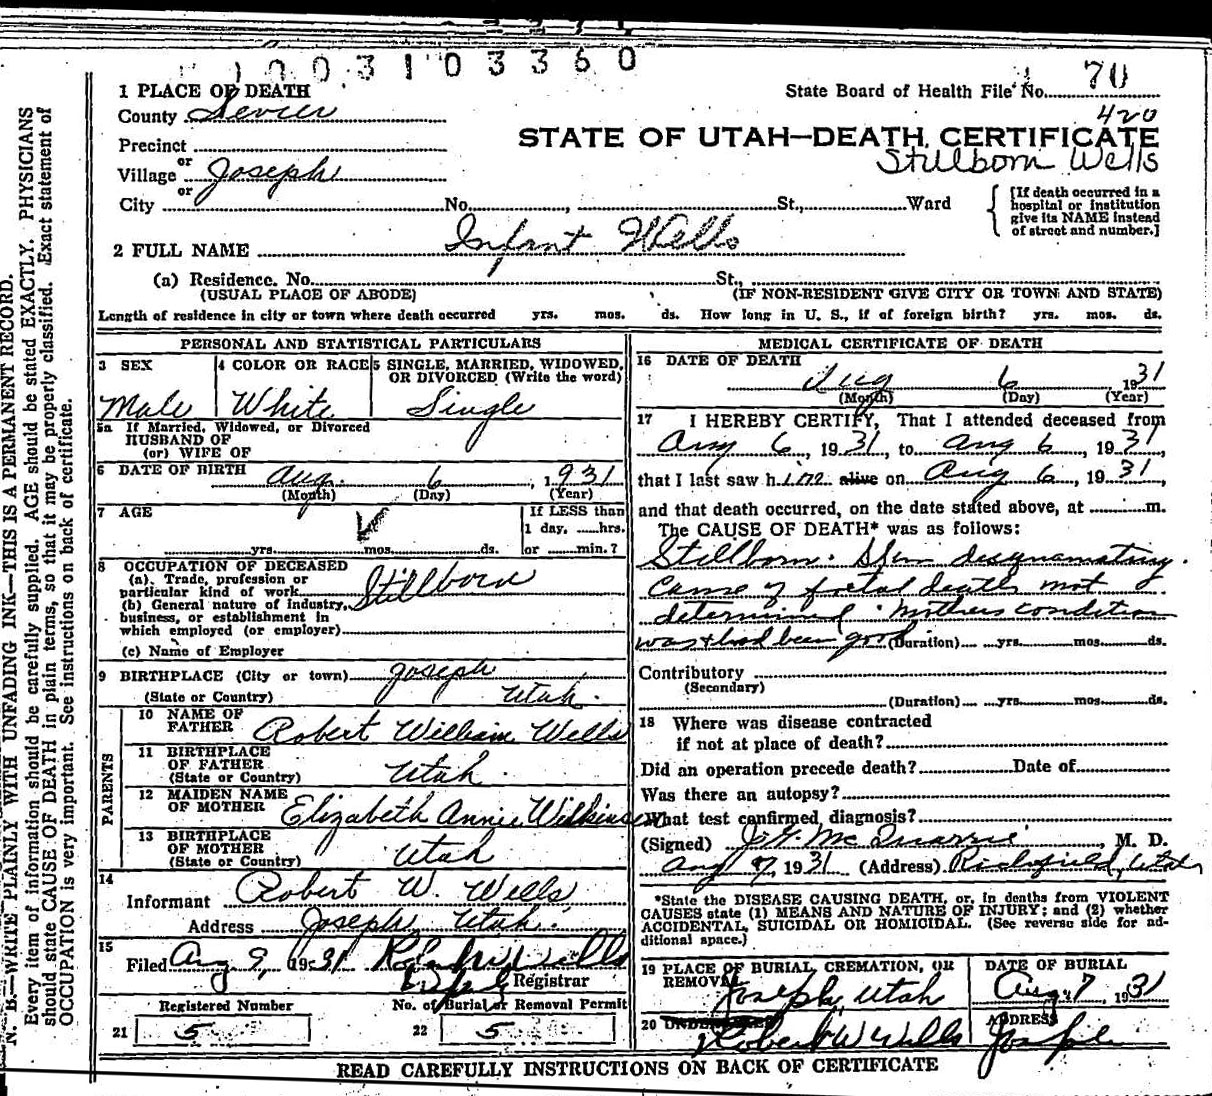 1003103360
1 PLACE OF DEATH
State Board of Health File No. 70
County Sevier
420
STATE OF UTAH—DEATH CERTIFICATE
Precinct
Stillborn Wells
or
Village Joseph
or
City No. , St., Ward
[If death occurred in a
hospital or institution
give its NAME instead
of street and number.]
2 FULL NAME Infant Wells
(a) Residence. No. St.,
(USUAL PLACE OF ABODE) (IF NON-RESIDENT GIVE CITY OR TOWN AND STATE)
Length of residence in city or town where death occurred yrs. mos. ds. How long in U. S., if of foreign birth? yrs. mos. ds.
PERSONAL AND STATISTICAL PARTICULARS
3 SEX
Male
4 COLOR OR RACE
White
5 SINGLE, MARRIED, WIDOWED,
OR DIVORCED (Write the word)
Single
5a If Married, Widowed, or Divorced
HUSBAND OF
(or) WIFE OF
6 DATE OF BIRTH Aug. 6, 1931
(Month) (Day) (Year)
7 AGE
yrs. mos. ds.
If LESS than
1 day, hrs.
or min.?
8 OCCUPATION OF DECEASED
(a). Trade, profession or
particular kind of work Stillborn
(b) General nature of industry,
business, or establishment in
which employed (or employer)
(c) Name of Employer
9 BIRTHPLACE (City or town) Joseph
(State or Country) Utah.
PARENTS
10 NAME OF
FATHER Robert William Wells
11 BIRTHPLACE
OF FATHER
(State or Country) Utah.
12 MAIDEN NAME
OF MOTHER Elizabeth Annie Wilkinson
13 BIRTHPLACE
OF MOTHER
(State or Country) Utah
14
Informant Robert W. Wells
Address Joseph, Utah.
15
Filed Aug 9, 1931 Wells
Registrar
Registered Number No. of Burial or Removal Permit
21 5 22 5
MEDICAL CERTIFICATE OF DEATH
16 DATE OF DEATH
Aug 6 1931
(Month) (Day) (Year)
17 I HEREBY CERTIFY, That I attended deceased from
Aug 6, 1931, to Aug 6, 1931
that I last saw him alive on Aug 6, 1931,
and that death occurred, on the date stated above, at m.
The CAUSE OF DEATH* was as follows:
Stillborn. Skin desquamating.
Cause of foetal death not
determined. Mothers condition
was & had been good (Duration) yrs. mos. ds.
Contributory
(Secondary)
(Duration) yrs. mos. ds.
18 Where was disease contracted
if not at place of death?
Did an operation precede death? Date of
Was there an autopsy?
What test confirmed diagnosis?
(Signed) J. G. McQuarrie, M. D.
Aug 7, 1931 (Address) Richfield, Utah
*State the DISEASE CAUSING DEATH, or, in deaths from VIOLENT
CAUSES state (1) MEANS AND NATURE OF INJURY; and (2) whether
ACCIDENTAL, SUICIDAL OR HOMICIDAL. (See reverse side for ad-
ditional space.)
19 PLACE OF BURIAL, CREMATION, OR
REMOVAL
Joseph, Utah
DATE OF BURIAL
Aug. 7, 1931
20
Robert W Wells
ADDRESS
Joseph
READ CAREFULLY INSTRUCTIONS ON BACK OF CERTIFICATE
N. B.—WRITE PLAINLY WITH UNFADING INK—THIS IS A PERMANENT RECORD.
Every item of information should be carefully supplied. AGE should be stated EXACTLY. PHYSICIANS
should state CAUSE OF DEATH in plain terms, so that it may be properly classified. Exact statement of
OCCUPATION is very important. See instructions on back of certificate.